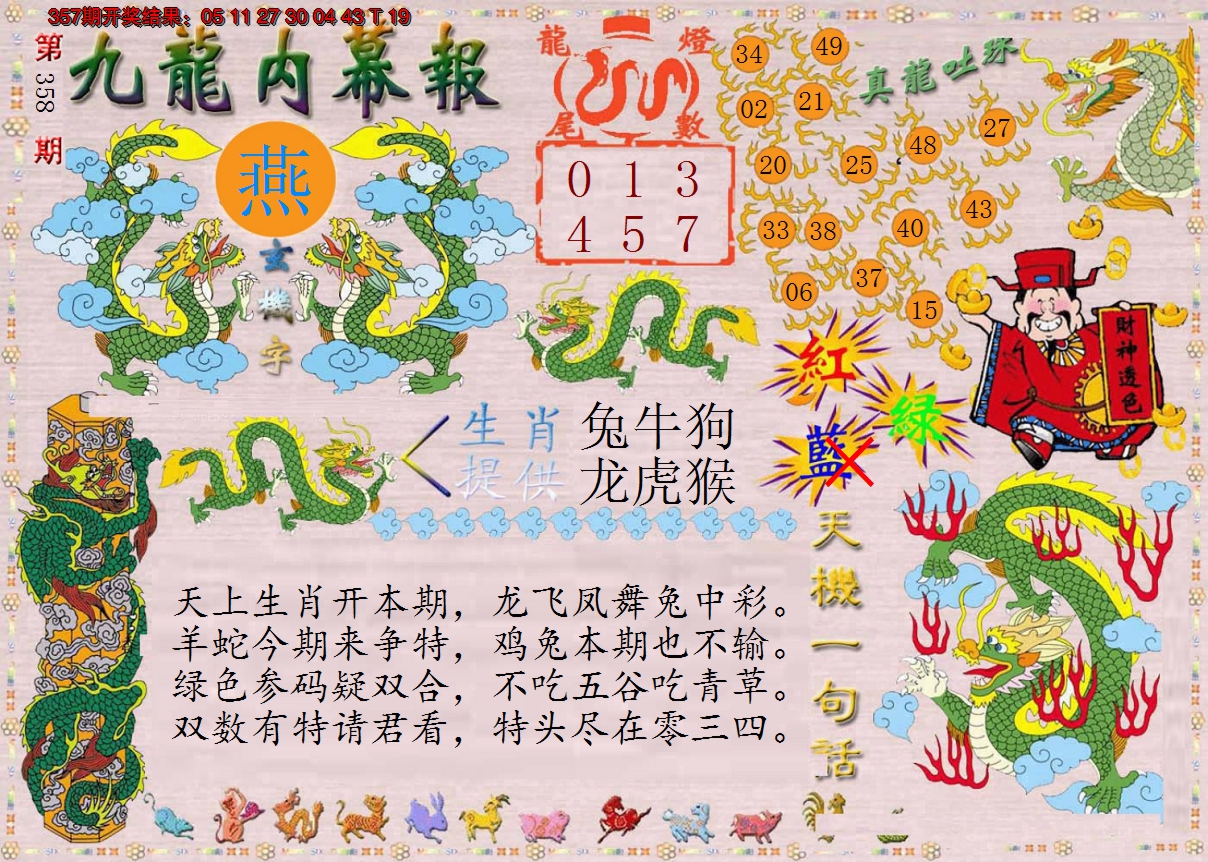 357期开奖结果：05 11 27 30 04 43 T 19
第358期
九龍内幕報
燕
玄機字
龍燈
尾數
0 1 3
4 5 7
真龍吐珠
34 49
02 21
20 25 48 27
33 38 40 43
06 37 15
財神透色
紅
綠
藍
生肖提供
兔牛狗
龙虎猴
天上生肖开本期，龙飞凤舞兔中彩。
羊蛇今期来争特，鸡兔本期也不输。
绿色参码疑双合，不吃五谷吃青草。
双数有特请君看，特头尽在零三四。
天機一句话